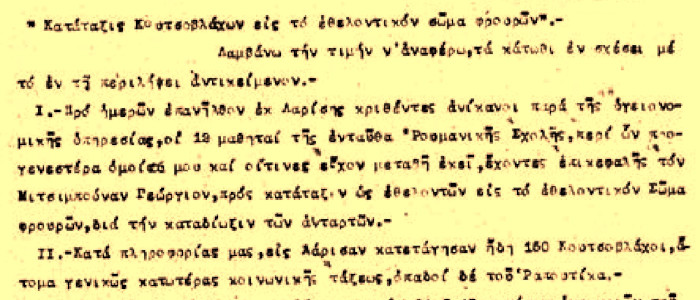 " Κατάταξις Κουτσοβλάχων εἰς τό ἐθελοντικόν σῶμα φρουρῶν".-
Λαμβάνω τήν τιμήν ν'ἀναφέρω,τά κάτωθι ἐν σχέσει μέ
τό ἐν τῇ περιλήψει ἀντικείμενον.-
Ι.-Πρό ἡμερῶν ἐπανῆλθον ἐκ Λαρίσης κριθέντες ἀνίκανοι παρά τῆς ὑγειονο-
μικῆς ὑπηρεσίας,οἱ 12 μαθηταί τῆς ἐνταῦθα Ῥουμανικῆς Σχολῆς,περί ὧν προ-
γενεστέρα ὁμοία μου καί οἵτινες εἶχον μεταβῆ ἐκεῖ,ἔχοντες ἐπικεφαλῆς τόν
Μιτσιμπούναν Γεώργιον,πρός κατάταξιν ὡς ἐθελοντῶν εἰς τό ἐθελοντικόν Σῶμα
φρουρῶν,διά τήν καταδίωξιν τῶν ἀνταρτῶν.-
ΙΙ.-Κατά πληροφορίας μας,εἰς Λάρισαν κατετάγησαν ἤδη 150 Κουτσοβλάχοι,ἄ-
τομα γενικῶς κατωτέρας κοινωνικῆς τάξεως,ὀπαδοί δέ τοῦ Ῥαπουτίκα.-